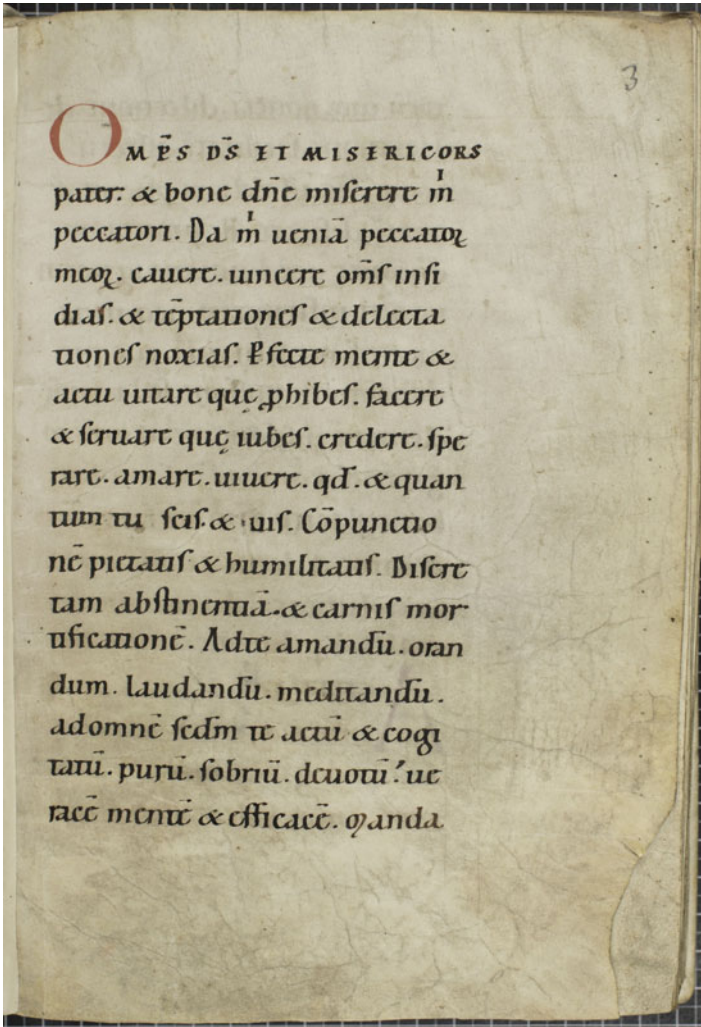 3
OMP̄S D̄S ET MISERICORS
pater. & bone dn̄e miserere m̍
peccatori. Da m̍ ueniā peccatoꝝ
meoꝝ. cauere. uincere om̄s insi
dias. & tēptationes & delecta
tiones noxias. P̄fecte mente &
actu uitare quę ꝓhibes. facere
& seruare quę iubes. credere. spe
rare. amare. uiuere. qd̄. & quan
tum tu scis. & uis. Cōpunctio
nē pietatis & humilitatis. Discre
tam abstinentiā. & carnis mor
tificationē. Ad te amandū. oran
dum. laudandū. meditandū.
ad omnē scd̄m te actū & cogi
tatū. purū. sobriū. deuotū. ue
racē mentē & efficacē. Manda